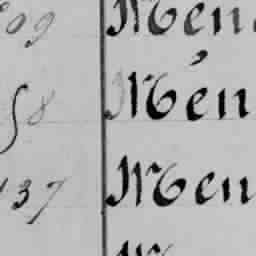 09 Men
58 Mén
137 Men